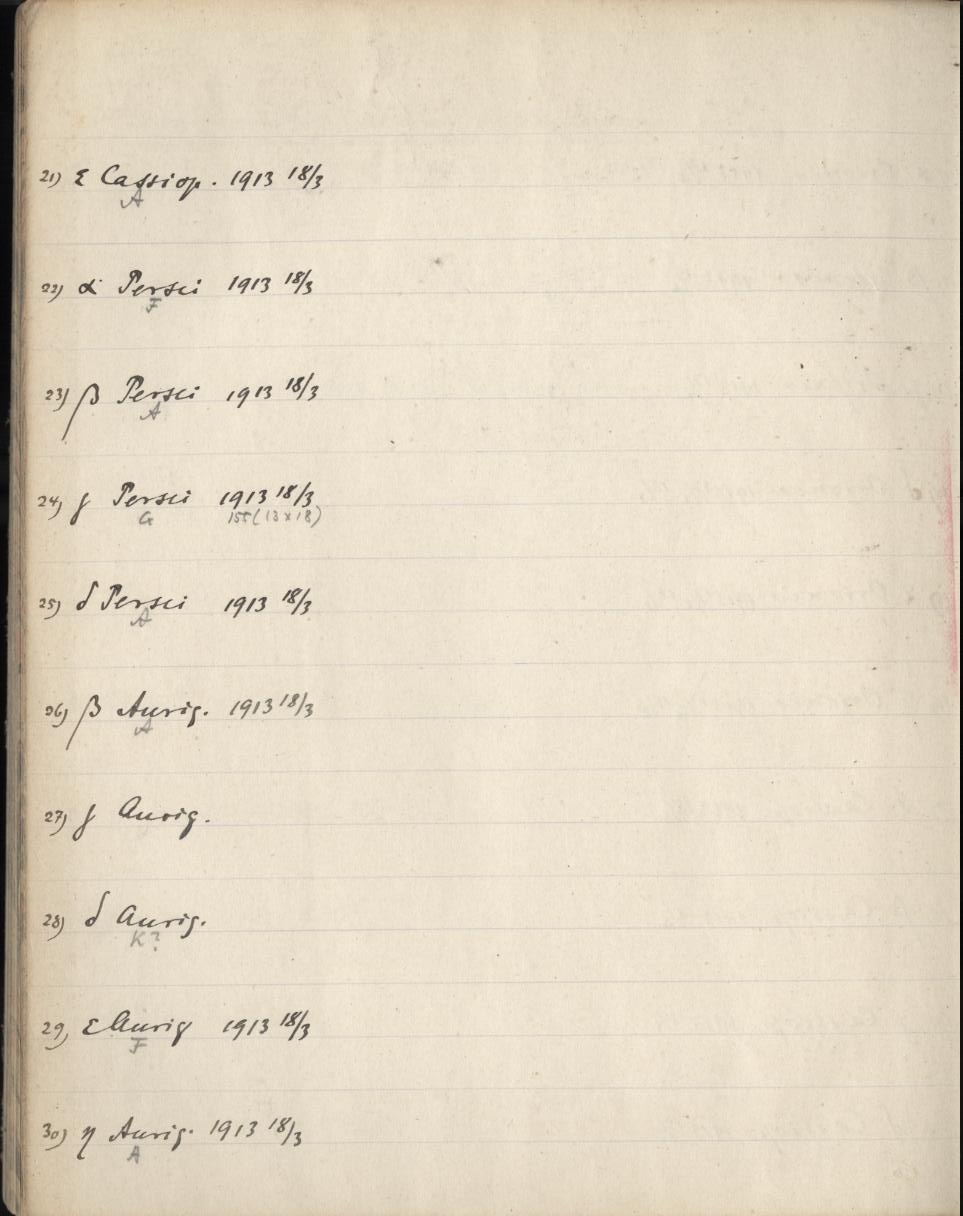 21) ε Cassiop. 1913 18/3
A
22) α Persei 1913 18/3
F
23) β Persei 1913 18/3
A
24) γ Persei 1913 18/3
G 155(13x18)
25) δ Persei 1913 18/3
A
26) β Aurig. 1913 18/3
A
27) γ Aurig.
28) δ Aurig.
K?
29) ε Aurig 1913 18/3
F
30) η Aurig. 1913 18/3
A